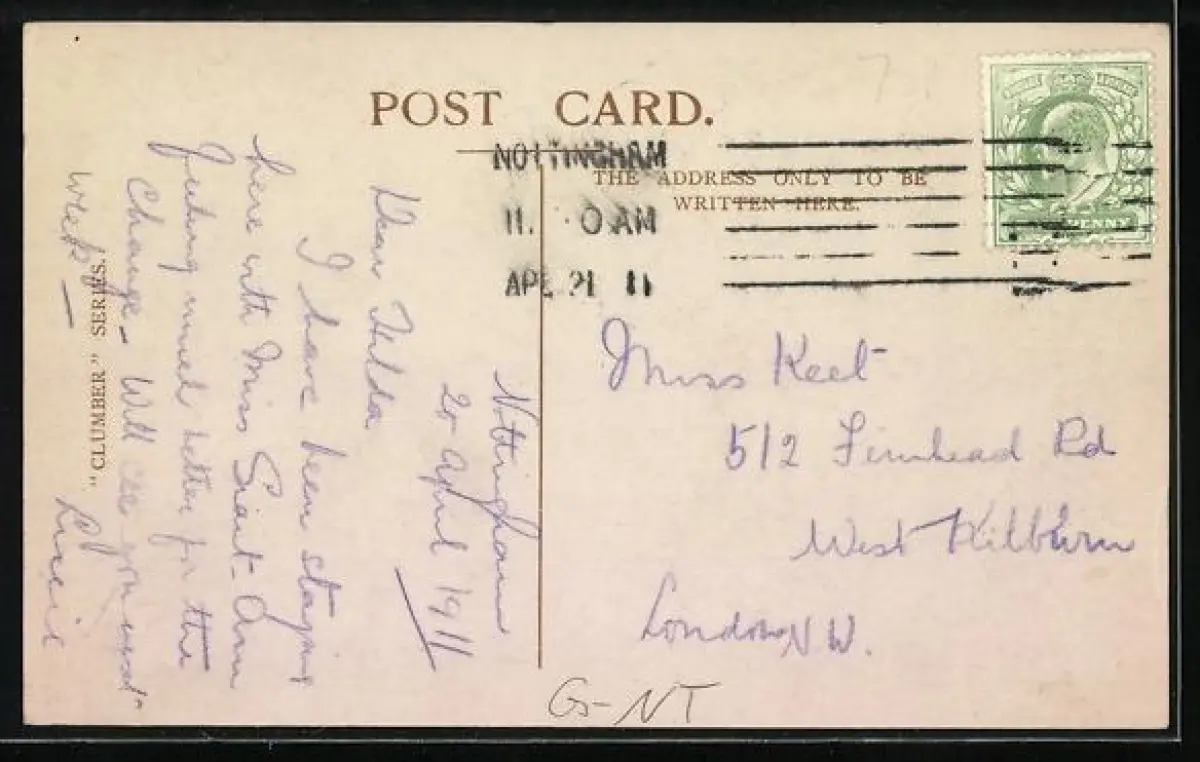 POST CARD.
THE ADDRESS ONLY TO BE
WRITTEN HERE.
NOTTINGHAM
11. 0 AM
APR 21 11
PENNY
Nottingham
20 April 1911
Dear Hilda
I have been staying
here with Miss
feeling much better for the
change - Will see you next
week -
"CLUMBER" SERIES.
Miss Keet
512 Fernhead Rd
West Kilburn
London N W.
GS-NT